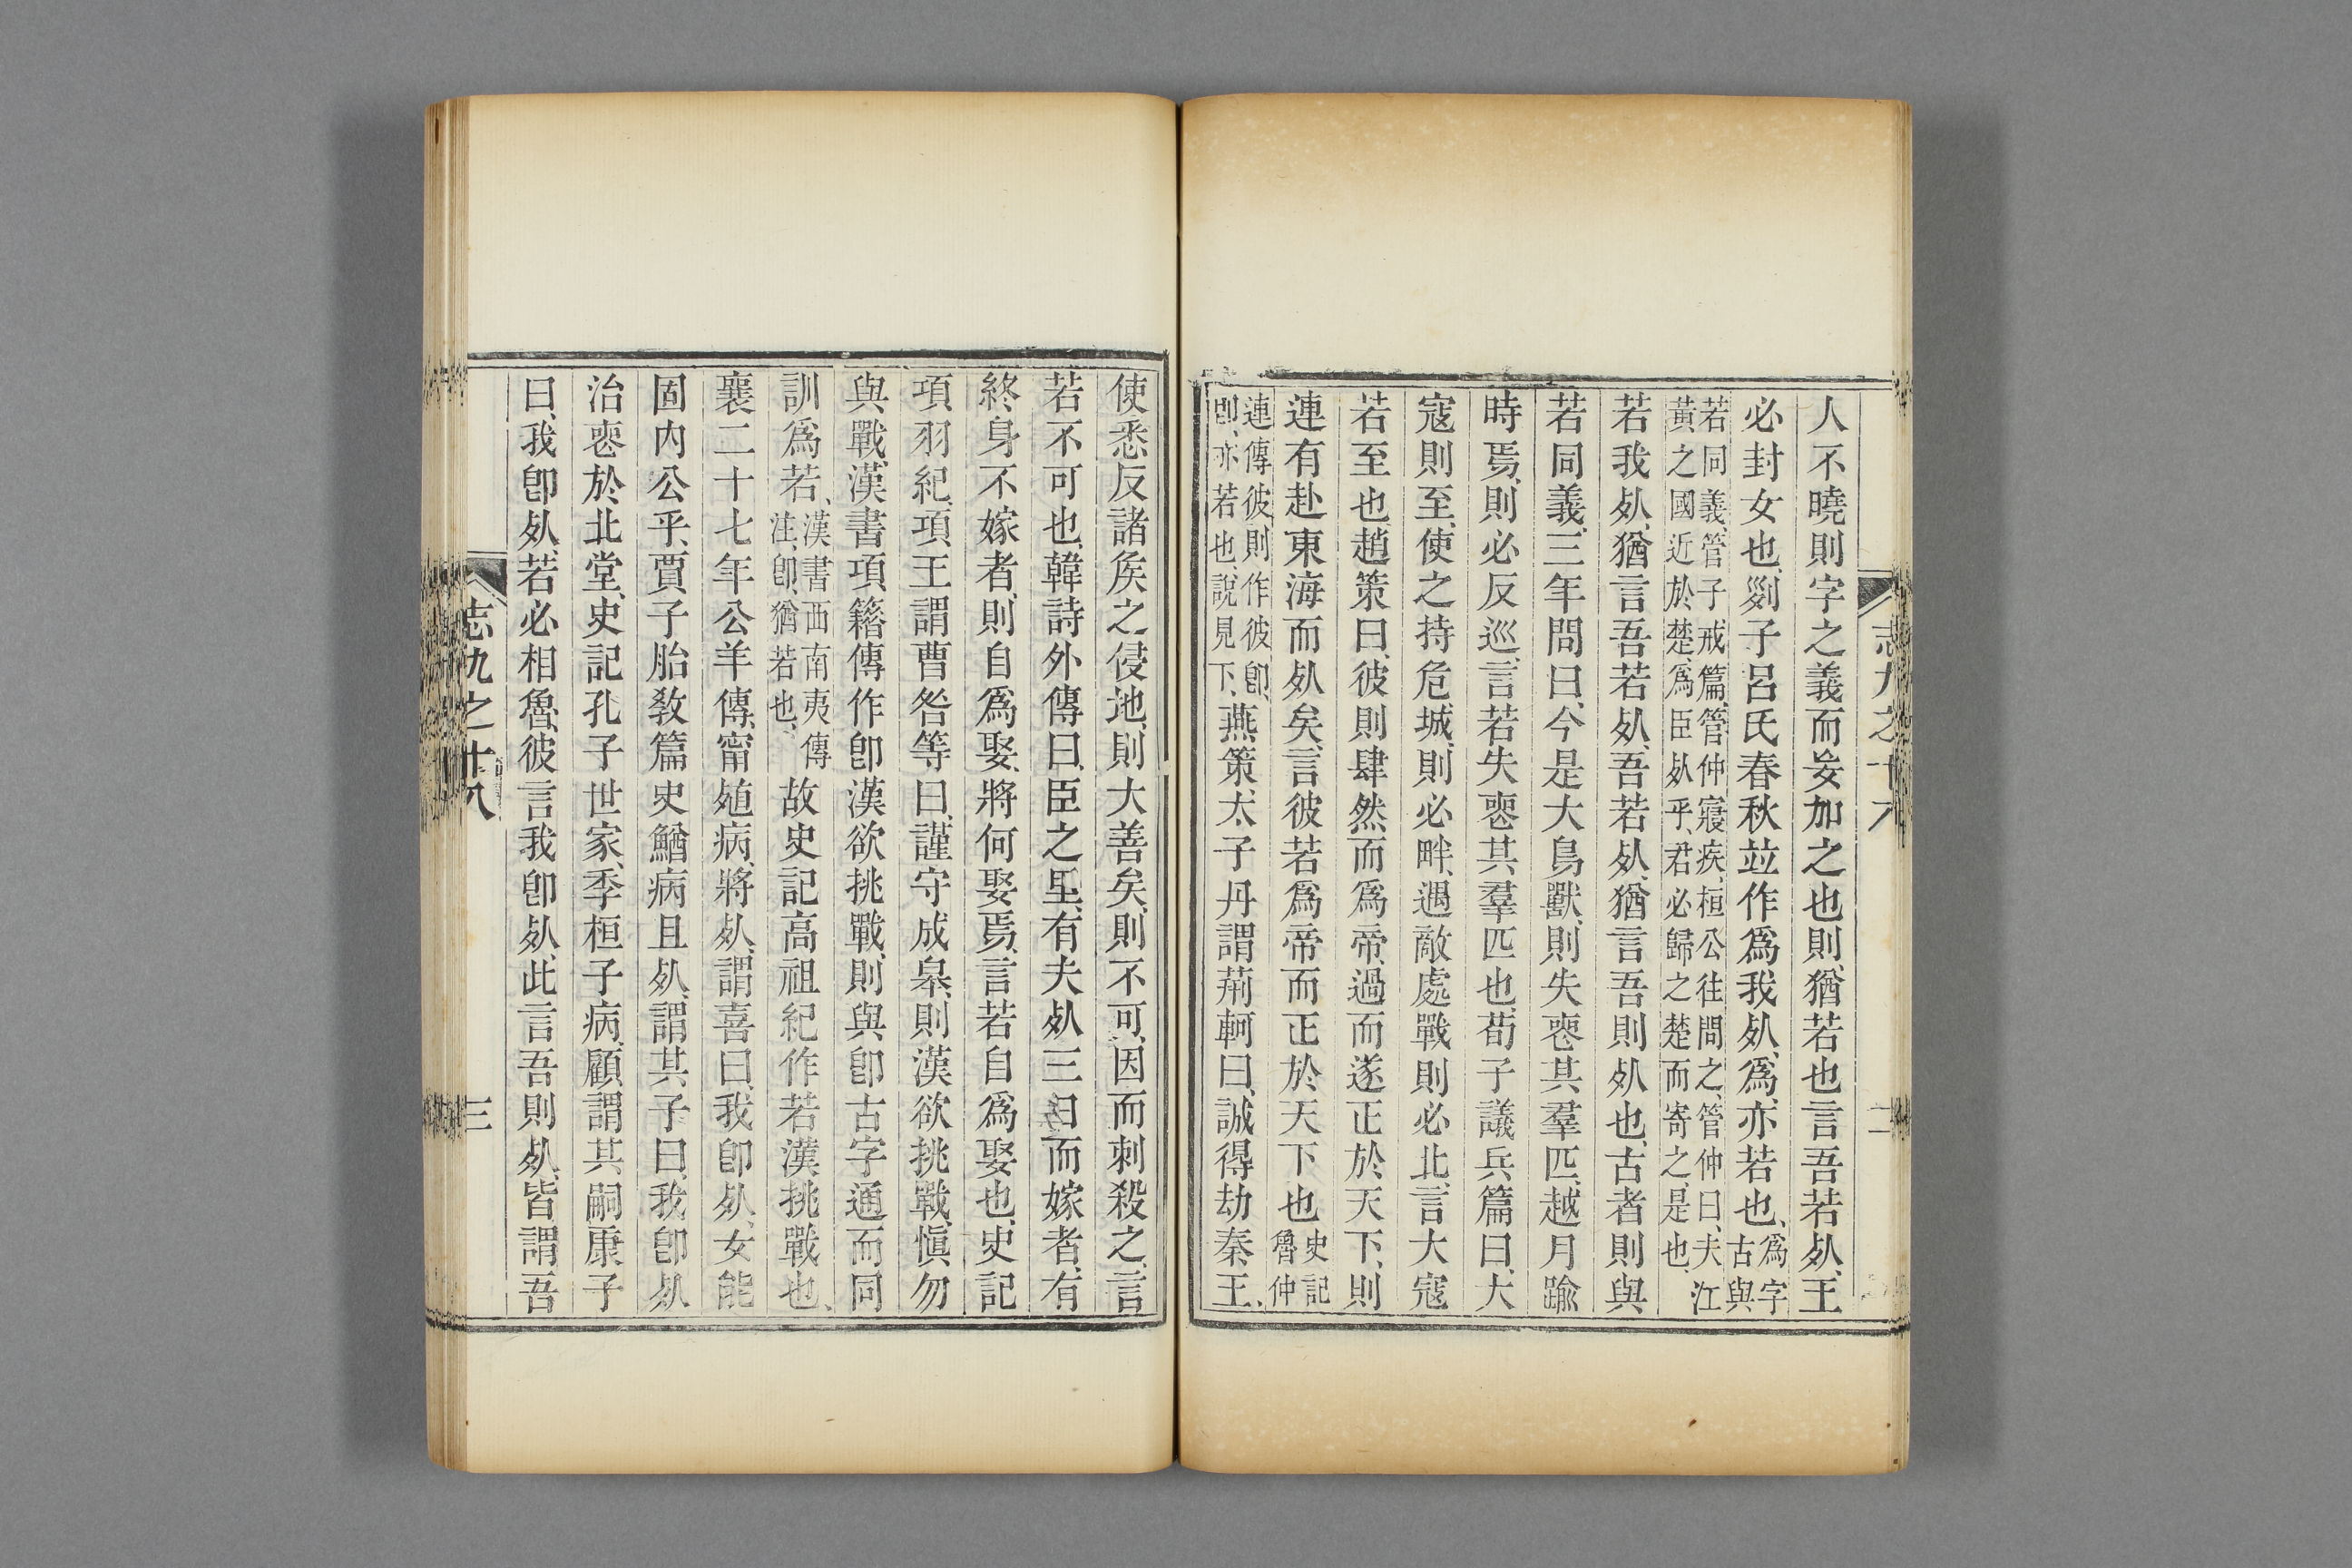 人不曉則字之義而妄加之也則猶若也言吾若𣦸王
必封女也劉子呂氏春秋竝作爲我𣦸爲亦若也爲字古與
若同義管子戒篇管仲寢疾桓公往問之管仲曰夫江
黃之國近於楚爲臣𣦸乎君必歸之楚而寄之是也
若我𣦸猶言吾若𣦸吾若𣦸猶言吾則𣦸也古者則與
若同義三年問曰今是大鳥獸則失喪其羣匹越月踰
時焉則必反巡言若失喪其羣匹也荀子議兵篇曰大
寇則至使之持危城則必畔遇敵處戰則必北言大寇
若至也趙策曰彼則肆然而爲帝過而遂正於天下則
連有赴東海而𣦸矣言彼若爲帝而正於天下也史記魯仲
連傳彼則作彼卽
卽亦若也說見下燕策太子丹謂荊軻曰誠得劫秦王
志九之十八 二
使悉反諸矦之侵地則大善矣則不可因而刺殺之言
若不可也韓詩外傳曰臣之里有夫𣦸三日而嫁者有
終身不嫁者則自爲娶將何娶焉言若自爲娶也史記
項羽紀項王謂曹咎等曰謹守成皋則漢欲挑戰愼勿
與戰漢書項籍傳作卽漢欲挑戰則與卽古字通而同
訓爲若漢書西南夷傳注卽猶若也故史記高祖紀作若漢挑戰也
襄二十七年公羊傳甯殖病將𣦸謂喜曰我卽𣦸女能
固內公乎賈子胎教篇史鰌病且𣦸謂其子曰我卽𣦸
治喪於北堂史記孔子世家季桓子病顧謂其嗣康子
曰我卽𣦸若必相魯彼言我卽𣦸此言吾則𣦸皆謂吾
志九之十八 三